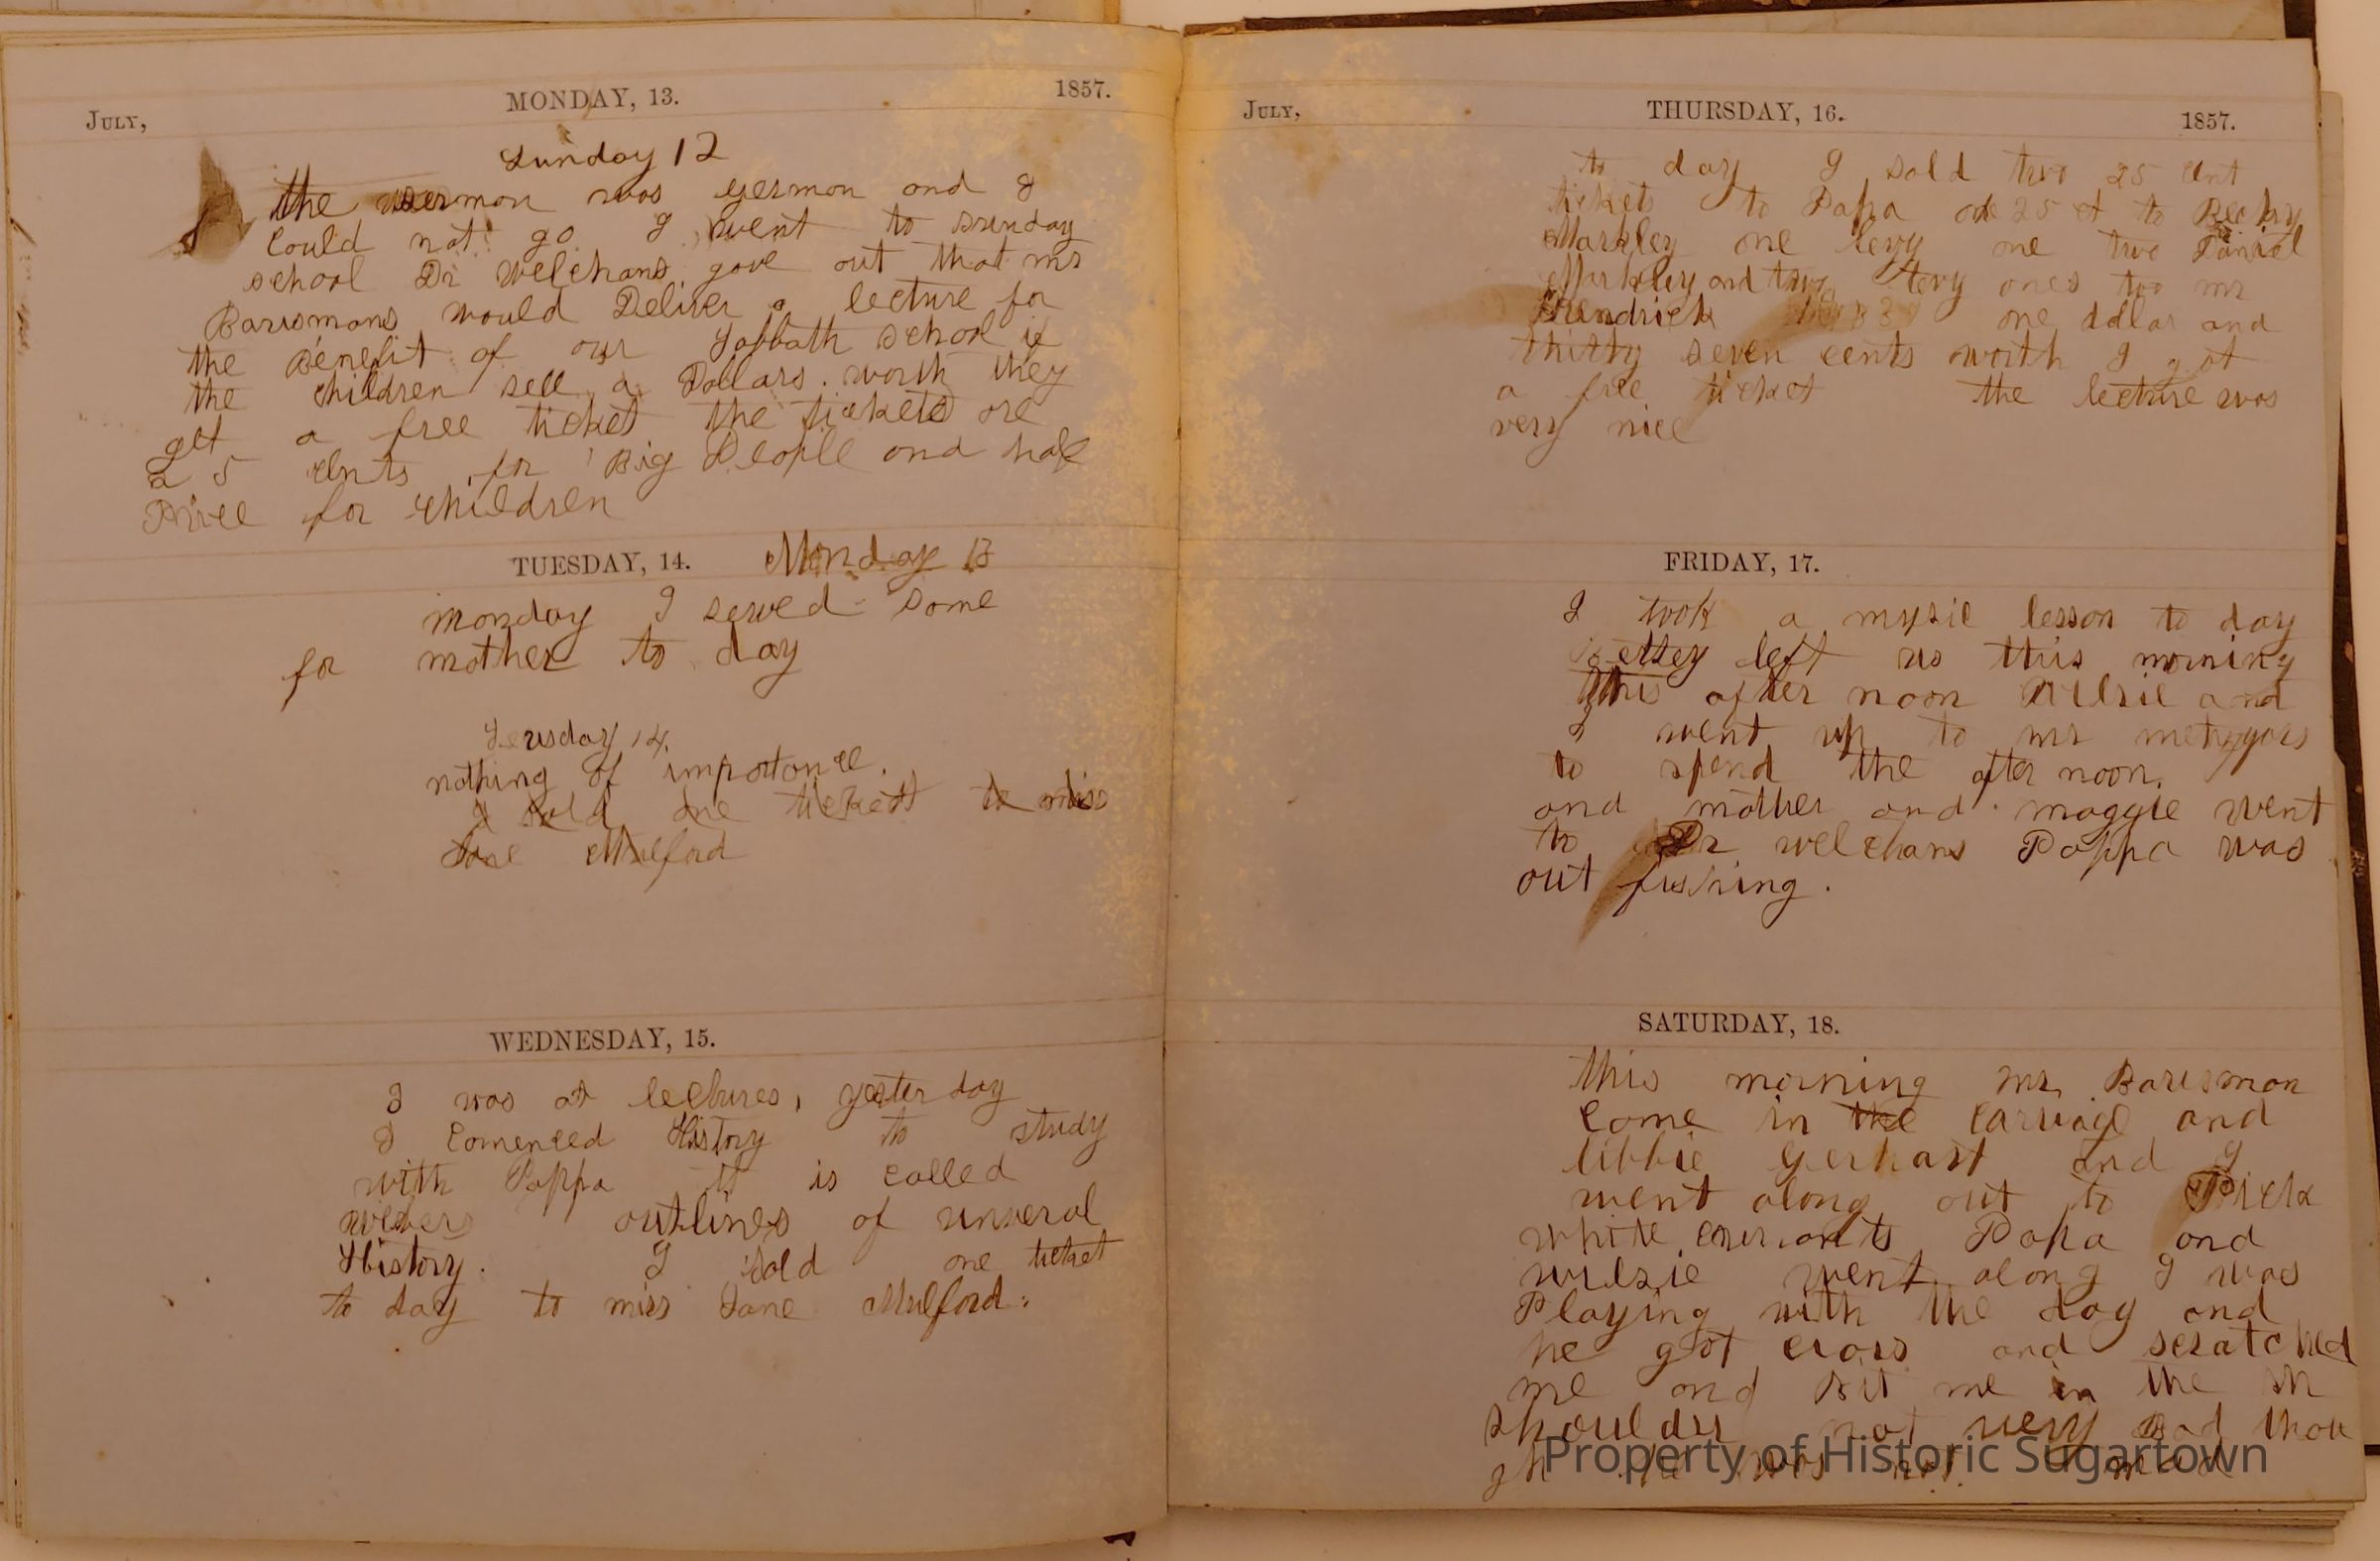 July,
MONDAY, 13.
1857.
Sunday 12
the sermon was germon and I
could not go I went to sunday
school Dr Welchans gave out that mr
Barrsmans would Deliver a lecture for
the Benefit of our Sabbath school if
the children sell a Dollars worth they
get a free ticket the tickets are
25 cents for Big People and half
Price for children
TUESDAY, 14.
Monday 13
monday I sewed some
for mother to day
Teusday 14.
nothing of importance.
I sold one tickett to miss
Jane Mulford
WEDNESDAY, 15.
I was at lectures, yesterday
I comenced History to study
with Pappa it is called
webers outlines of unveral
History. I sold one ticket
to day to miss Jane Mulford.
July,
THURSDAY, 16.
1857.
to day I sold two 25 cent
tickets to Papa one 25 ct to Becky
Markley one levy one two Danial
Markley and two levy ones too mr
Hendrick one dollar and
thirty seven cents worth I got
a free ticket the lecture was
very nice
FRIDAY, 17.
I took a mysic lesson to day
Bettey left us this morning
this after noon Wilsie and
I went up to mr
to spend the after noon.
and mother and maggie went
to Dr welchans Pappa was
out fishing.
SATURDAY, 18.
this morning mr Barrsman
come in the carriage and
libbie Gerhart and I
went along out to Pick
white currants Papa and
wilsie went along I was
Playing with the dog and
he got cross and scratched
me and Bit me in the sh
shoulder not very Bad thou
gh he was not mad
Property of Historic Sugartown